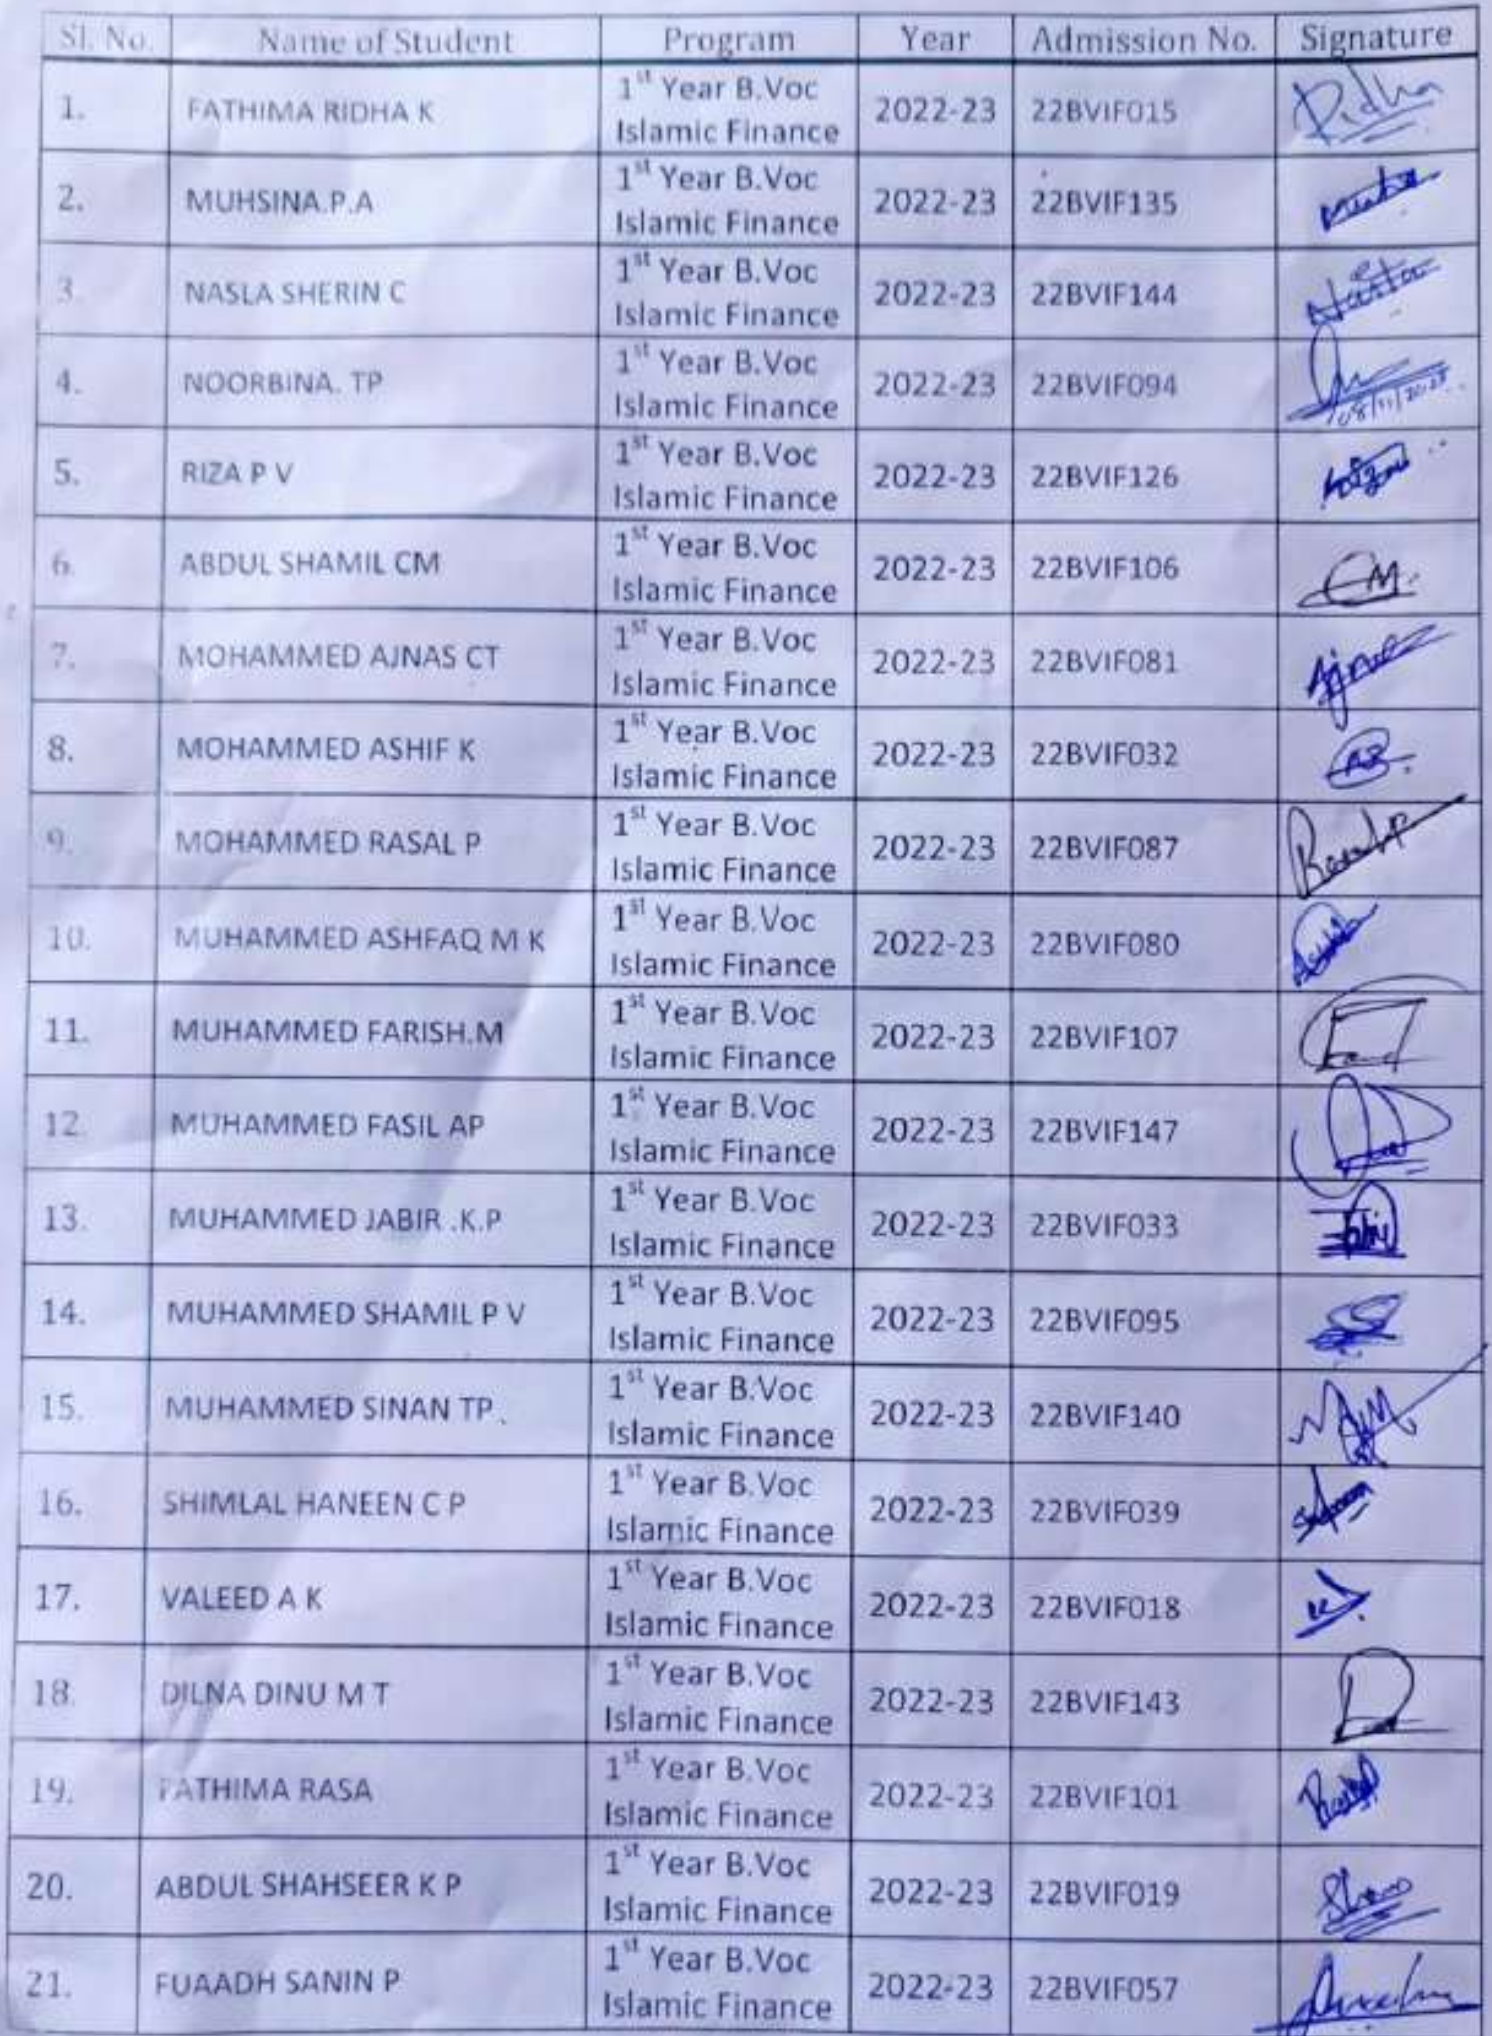 Sl. No. Name of Student Program Year Admission No. Signature
1. FATHIMA RIDHA K 1st Year B.Voc Islamic Finance 2022-23 22BVIF015 Ridha
2. MUHSINA.P.A 1st Year B.Voc Islamic Finance 2022-23 22BVIF135
3. NASLA SHERIN C 1st Year B.Voc Islamic Finance 2022-23 22BVIF144
4. NOORBINA. TP 1st Year B.Voc Islamic Finance 2022-23 22BVIF094 08/11/2023
5. RIZA P V 1st Year B.Voc Islamic Finance 2022-23 22BVIF126
6. ABDUL SHAMIL CM 1st Year B.Voc Islamic Finance 2022-23 22BVIF106 CM.
7. MOHAMMED AJNAS CT 1st Year B.Voc Islamic Finance 2022-23 22BVIF081 Ajnas
8. MOHAMMED ASHIF K 1st Year B.Voc Islamic Finance 2022-23 22BVIF032
9. MOHAMMED RASAL P 1st Year B.Voc Islamic Finance 2022-23 22BVIF087
10. MUHAMMED ASHFAQ M K 1st Year B.Voc Islamic Finance 2022-23 22BVIF080
11. MUHAMMED FARISH.M 1st Year B.Voc Islamic Finance 2022-23 22BVIF107
12. MUHAMMED FASIL AP 1st Year B.Voc Islamic Finance 2022-23 22BVIF147
13. MUHAMMED JABIR .K.P 1st Year B.Voc Islamic Finance 2022-23 22BVIF033
14. MUHAMMED SHAMIL P V 1st Year B.Voc Islamic Finance 2022-23 22BVIF095
15. MUHAMMED SINAN TP. 1st Year B.Voc Islamic Finance 2022-23 22BVIF140
16. SHIMLAL HANEEN C P 1st Year B.Voc Islamic Finance 2022-23 22BVIF039
17. VALEED A K 1st Year B.Voc Islamic Finance 2022-23 22BVIF018
18. DILNA DINU M T 1st Year B.Voc Islamic Finance 2022-23 22BVIF143
19. FATHIMA RASA 1st Year B.Voc Islamic Finance 2022-23 22BVIF101
20. ABDUL SHAHSEER K P 1st Year B.Voc Islamic Finance 2022-23 22BVIF019
21. FUAADH SANIN P 1st Year B.Voc Islamic Finance 2022-23 22BVIF057